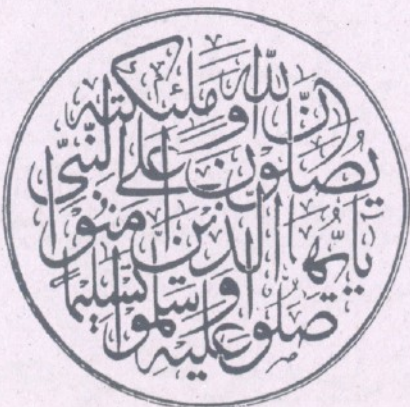 إِنَّ اللّٰهَ وَمَلٰئِكَتَهُ
يُصَلُّونَ عَلَى النَّبِىِّ
يٰٓاَيُّهَا الَّذِينَ اٰمَنُوا
صَلُّوا عَلَيْهِ وَسَلِّمُوا تَسْلِيمًا